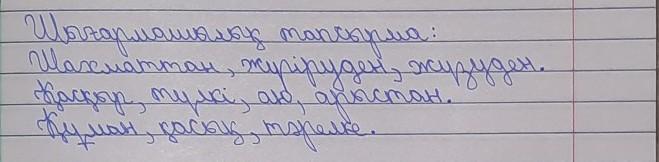 Шығармашылық тапсырма:
Шахматтан, жүгіруден, жүзуден.
Қасқыр, түлкі, аю, арыстан.
Құман, қасық, тәрелке.